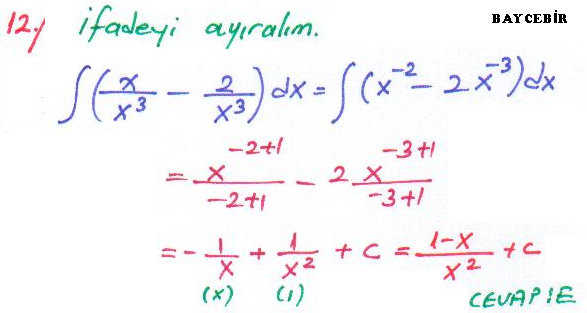 12-) ifadeyi ayıralım.
BAYCEBİR
∫(x/x³ − 2/x³)dx = ∫(x⁻² − 2x⁻³)dx
= x⁻²⁺¹/−2+1 − 2 x⁻³⁺¹/−3+1
= − 1/x + 1/x² + c = 1−x/x² + c
(x) (1) CEVAP:E